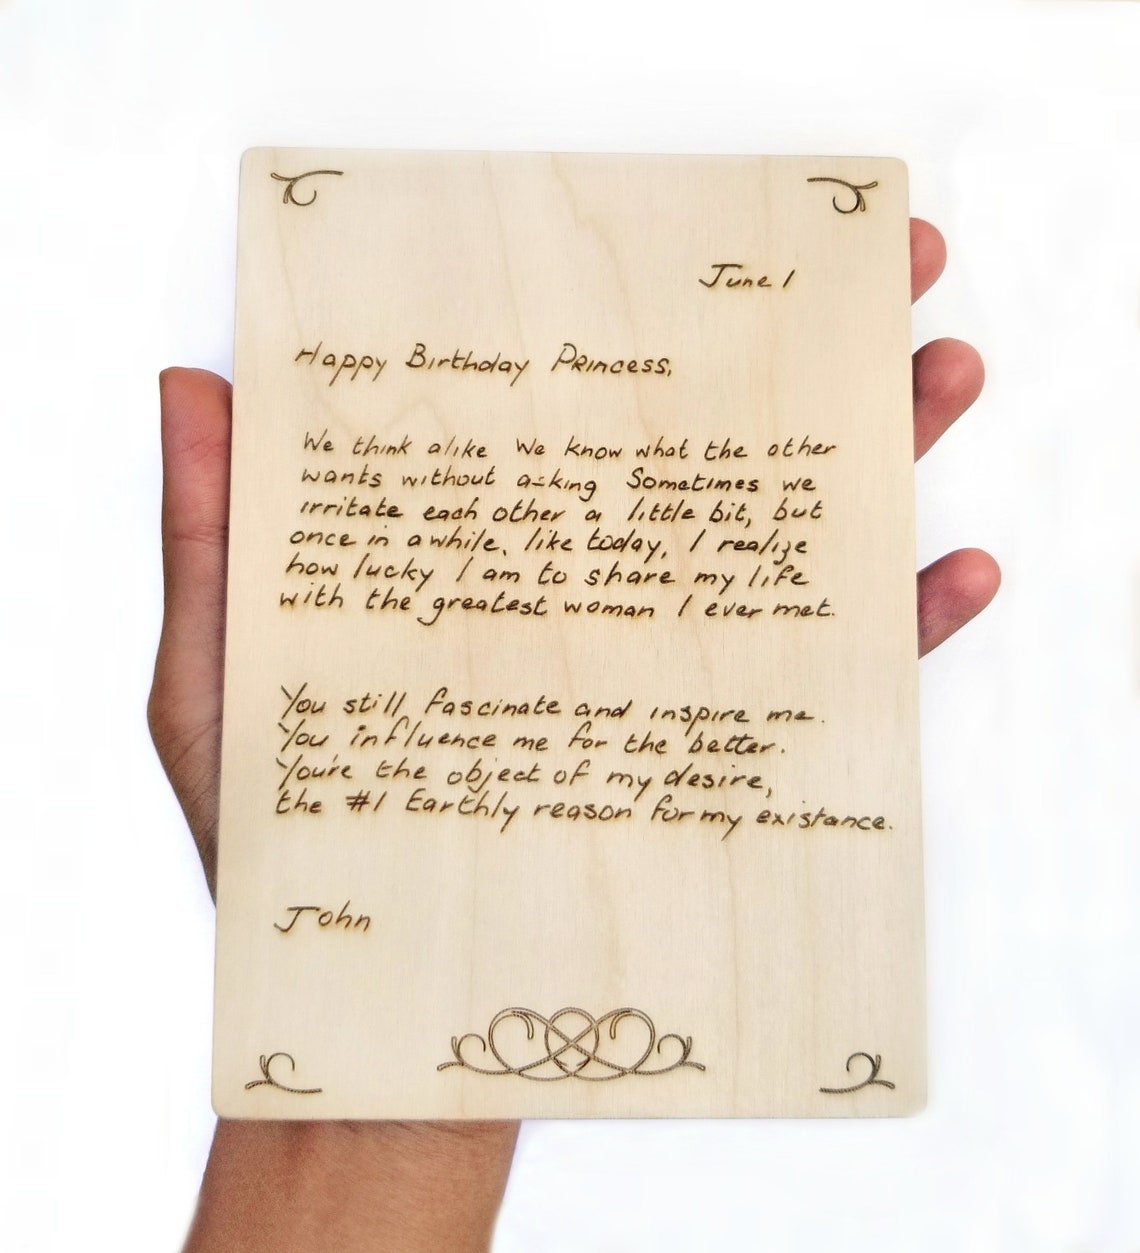 June 1
Happy Birthday Princess,
We think alike We know what the other
wants without asking Sometimes we
irritate each other a little bit, but
once in awhile, like today, I realize
how lucky I am to share my life
with the greatest woman I ever met.
You still fascinate and inspire me.
You influence me for the better.
You're the object of my desire,
the #1 Earthly reason for my existance.
John